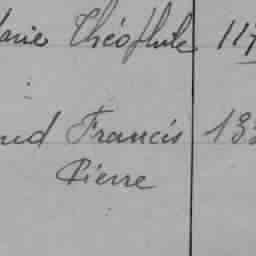 Théophile 117
Francis 13
Pierre